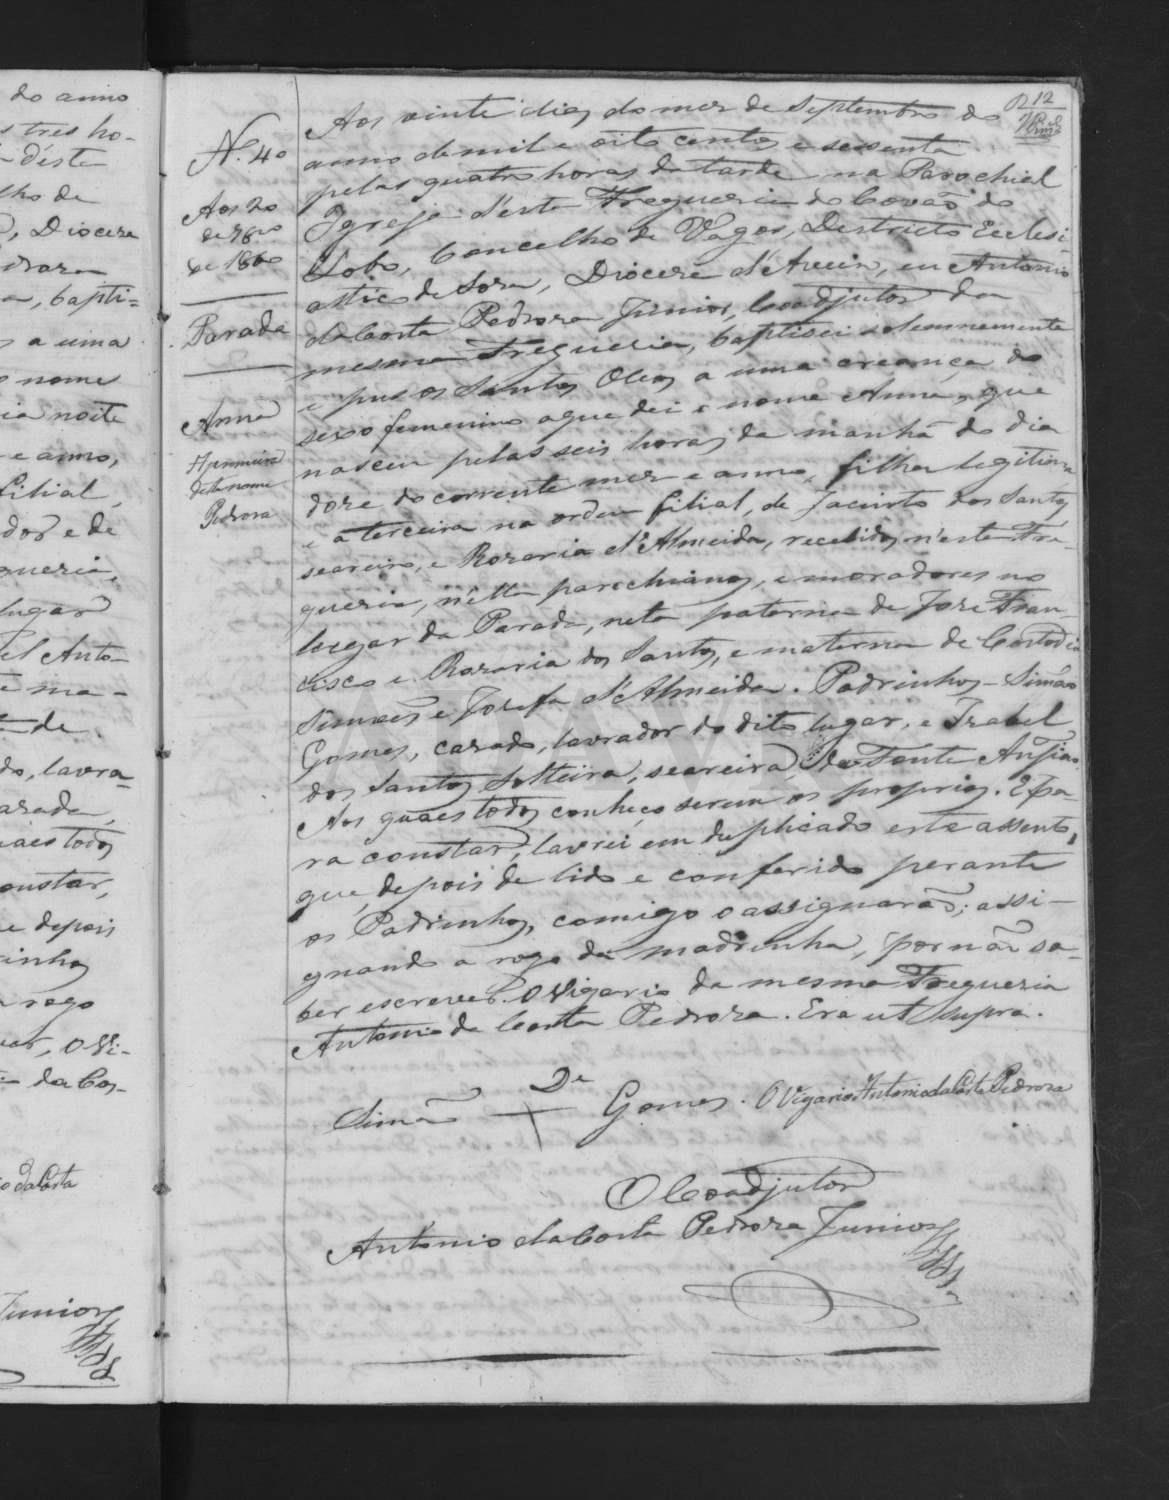 do anno
s tres ho-
d'esta
lho de
, Diocese
droza
a, bapti=
s a uma
o nome
ia noite
e anno,
filial,
dor e de
guezia,
lugar
el Anto-
e ma-
de
do, lavra=
arada,
uaes todos
onstar,
e depois
inhos
a rogo
, O Vi-
da Cos-
o da Costa
Junior
12
N.º 40
Aos 20
de 7bro
de 1860
Parada
Anna
A primeira
deste nome
Pedroza
Aos vinte dias do mez de Septembro do
anno de mil e oito centos e sessenta
pelas quatro horas da tarde na Parochial
Igreja d'esta Freguezia do Covaõ do
Lobo, Concelho de Vagos, Destricto Eclesi-
astico de Soza, Diocese d'Aveiro, eu Antonio
da Costa Pedroza Junior, Coadjutor da
mesma Freguezia, baptisei solemnemente
e puz os Santos Oleos a uma creança do
sexo femenino a que dei o nome Anna, que
nasceu pelas seis horas da manhã do dia
doze do corrente mez e anno, filha legitima
e a terceira na ordem filial, de Jacinto dos Santos,
seareiro, e Rozaria d'Almeida, recebidos n'esta Fre-
guezia, n'ella parochianos, e moradores no
lugar da Parada, neta paterna de Joze Fran-
cisco e Rozaria dos Santos, e materna de Custodio
Simoẽs e Jozefa d'Almeida. Padrinhos - Simão
Gomes, cazado, lavrador do dito lugar, e Izabel
dos Santos Solteira, seareira, da Fonte Anjião.
Aos quaes todos conheço serem os proprios. E pa-
ra constar, lavrei em duplicado este assento,
que, depois de lido e conferido perante
os Padrinhos, comigo o assignaraõ; assi-
gnando a rogo da madrinha, por naõ sa-
ber escrever. O Vigario da mesma Freguezia
Antonio da Costa Pedroza. Era ut supra.
De
Simaõ + Gomes. O Vigario Antonio da Costa Pedroza
O Coadjutor
Antonio da Costa Pedroza Junior